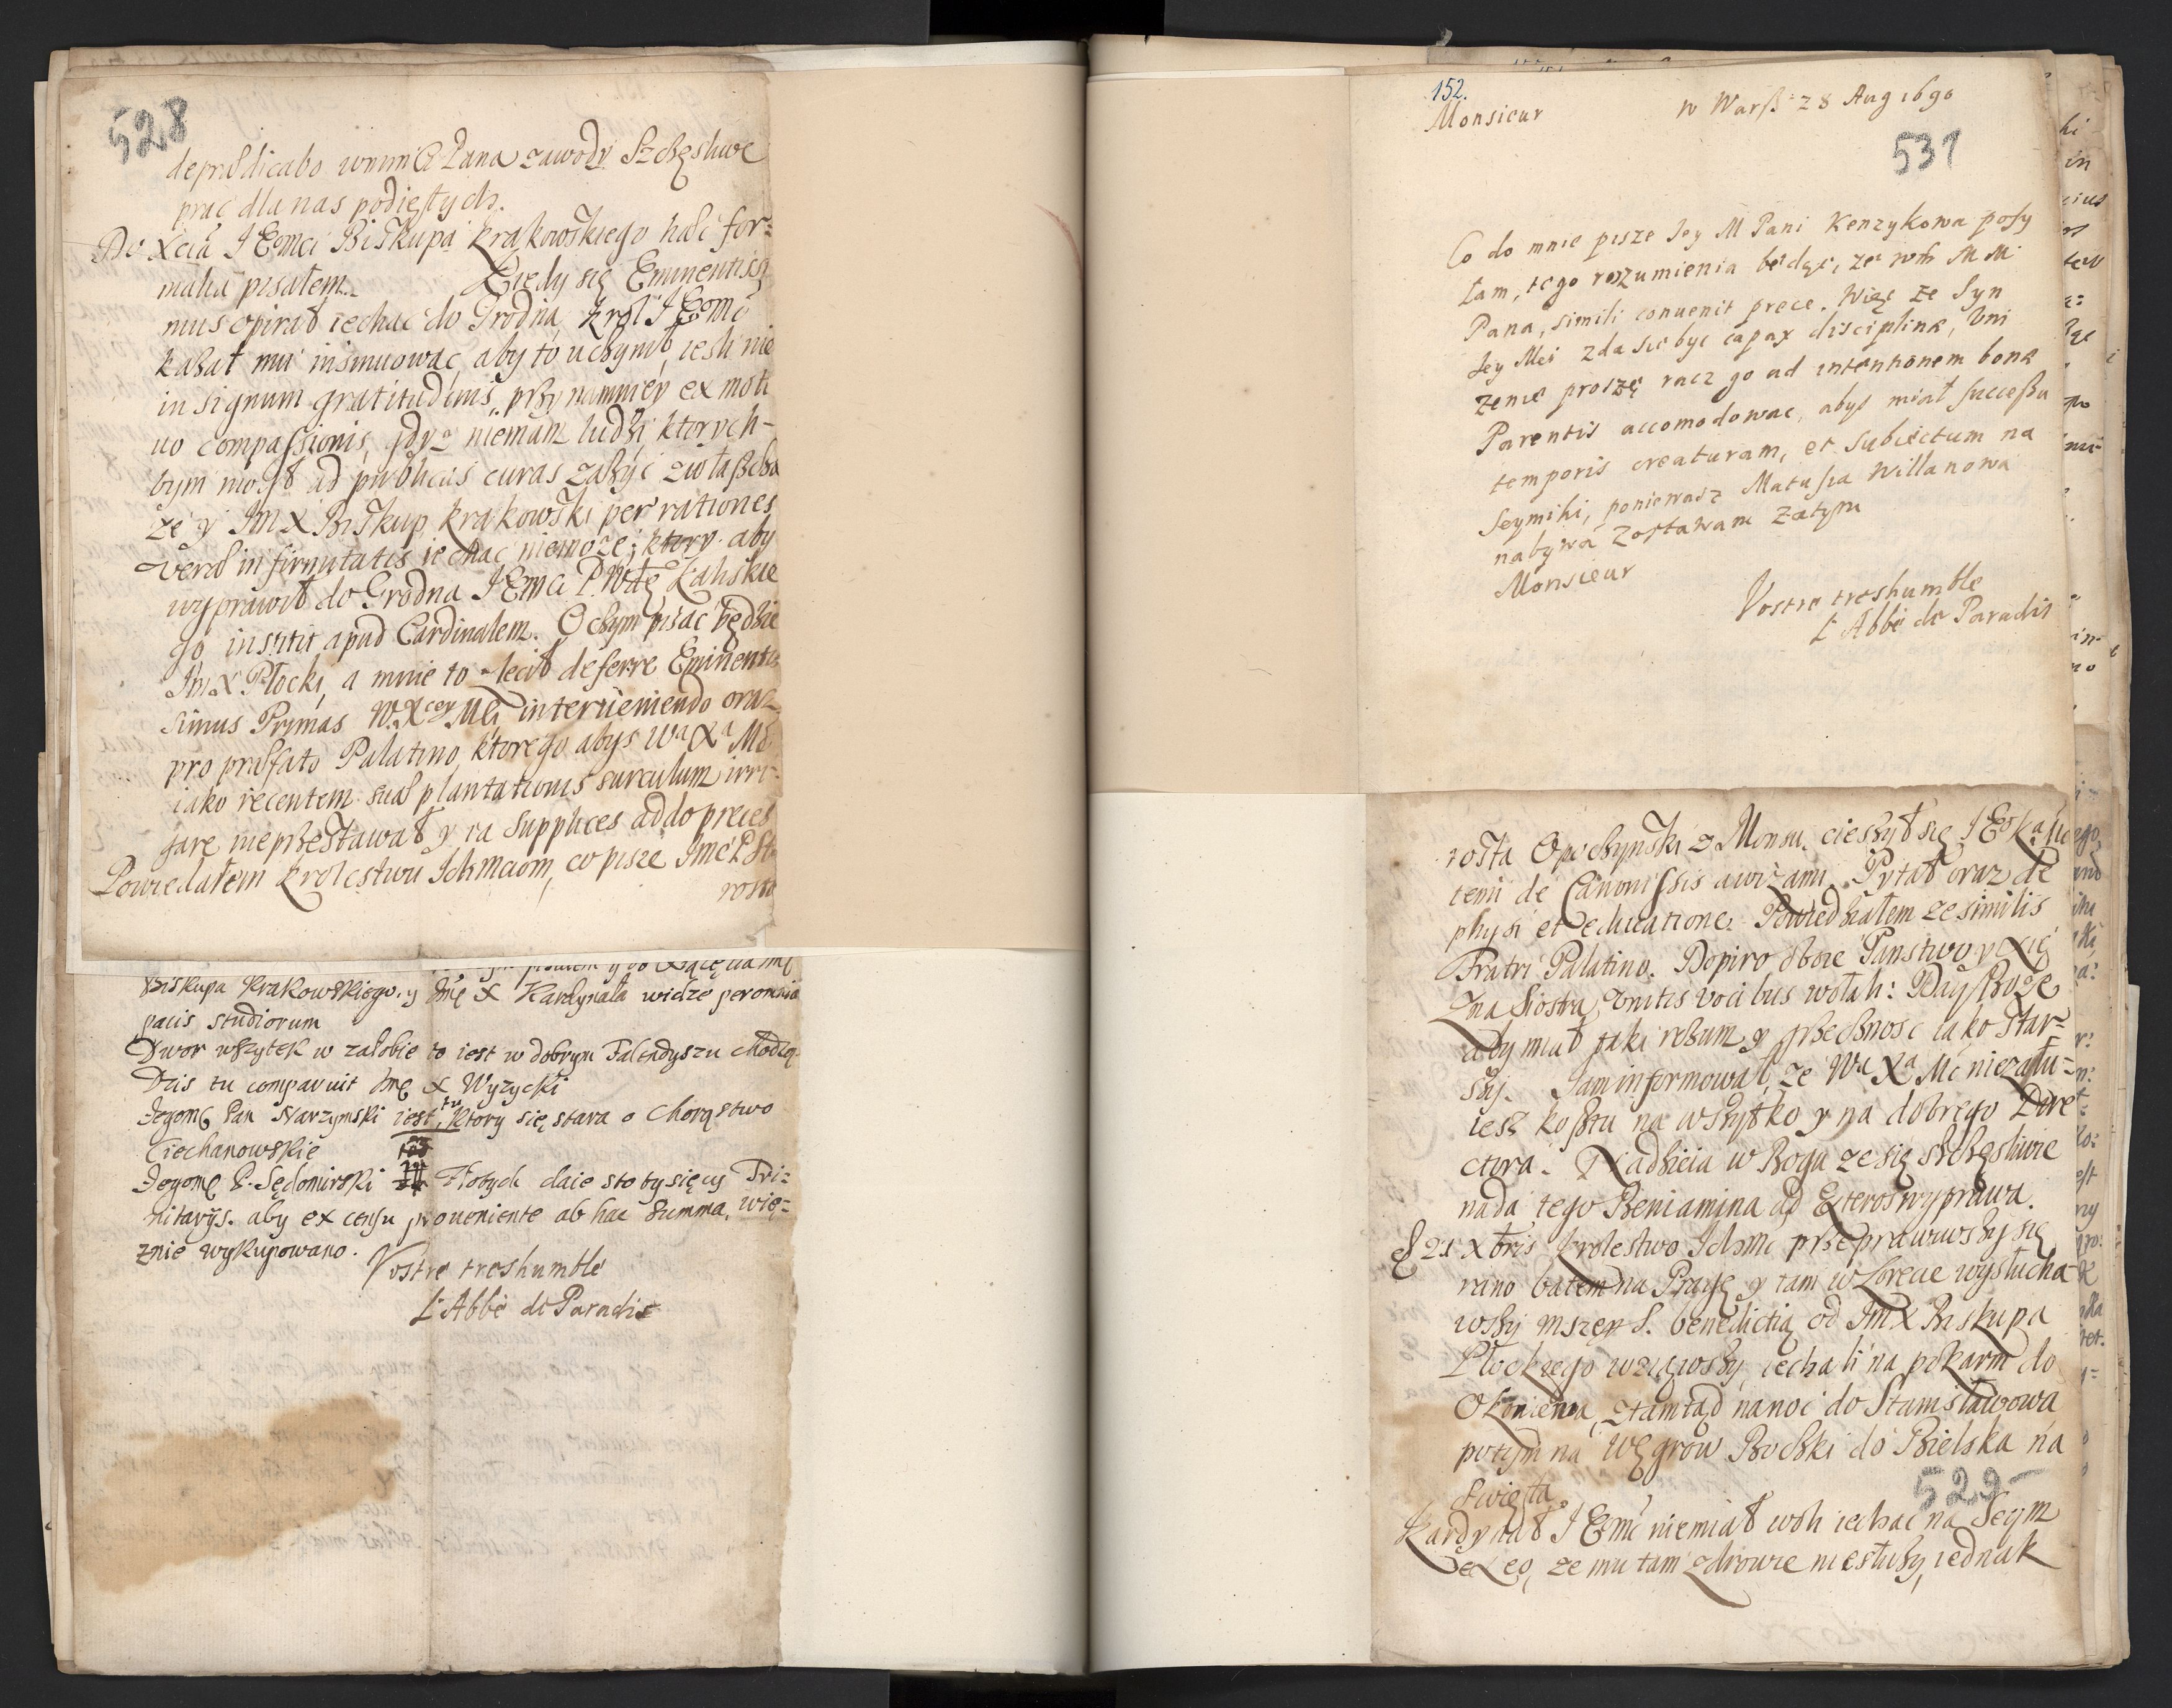 528
deprædicabo wmm Pana zawody Szczęsliwe
prac dla nas podiętych.
Do Xcia J Eomci Biskupa Krakowskiego hac for=
malia pisałem. Kiedy się Eminentissi
mus opirał iechac do Grodna, Krol J Eomc
kazał mu insinuowac, aby to uczynił, iesli nie
in signum gratitudinis, przynamniey ex moti
uo compassionis, gdyz niemam ludzi ktorych-
bym mogł ad publicas curas zazyć zwłaszcza
ze y Jm X Biskup Krakowski per rationes
veræ infirmitatis iechac niemoze; ktory aby
wyprawił do Grodna J Emci P. Wdę Kaliskie
go institit apud Cardinalem. O czym pisac będzie
Jm X Płocki, a mnie to zlecił deferre Eminentis
simus Prymas W. Xcey Mci interueniendo oraz
pro præfato Palatino, ktorego abys Wa Xa Mć
iako recentem suæ plantationis surculum irri-
gare nieprzestawał y ia supplices addo preces
Powiedałem Krolestwu Ichmciom, co pisze Jmć P. Sta
rosta
Biskupa Krakowskiego. y Jmę X Kardynała widzę per omnia
pacis studiorum
Dwor wszytek w załobie to iest w dobrym Faltadyszu chodzą.
Dzis tu comparuit Jmę X Wyzycki
Jegomę Pan Narzymski iest tu, ktory się stara o Chorąstwo
Ciechanowskie
Jegomę P. Sędomirski Złotych daie sto tysięcy Tri=
nitarÿs. aby ex censu proueniente ab hac summa, wię=
znie wykupowano.
Vostre treshumble
L'Abbè de Paradis
152.
Monsieur
w Warsz 28 Aug 1690
531
Co do mnie pisze Jey M Pani Kenzykowa posy
łam, tego rozumienia będąc, ze wm M Mi
Pana, simili conuenit prece. Więc ze Syn
Jey Mci zda się byc capax disciplinæ, Uni
zenie proszę racz go ad intentionem bonæ
Parentis accomodowac, abys miał successu
temporis creaturam, et subiectum na
Seymiki, poniewasz Matusia Willanowa
nabywa zostawam zatym
Monsieur
Vostre treshumble
L'Abbè de Paradis
rosta Opoczynski z Monsu. cieszył się J Eo
temi de Canonissis awizami. Pytał oraz de
physi et educatione. Powiedziałem ze similis
Fratri Palatino. Dopiro oboie Panstwo y Xię
zna Siostra, unitis vocibus wołali: Day Boze
aby miał taki rozum y grzecznosc iako star=
szy. Jam informował, ze Wa Xa Mć niezału=
iesz kosztu na wszytko y na dobrego Dire
ctora. Nadzieia w Bogu ze się szczęsliwie
nada tego Beniamina ad Exteros wyprawa.
21 Xbris Krolestwo Ichmć przeprawiwszy się
rano batem na Pragę y tam w Lorecie wysłucha
wszy mszey S. benedictią od Jm X Biskupa
Płockiego wziąwszy, iechali na pokarm do
Okuniewa, ztamtąd nanoc do Stanisławowa
potym na Węgrow Bocki do Bielska na
Swięta.
529
Kardynał J Emć niemiał woli iechac na Seym
dla tego, ze mu tam zdrowie niesłuzy, iednak